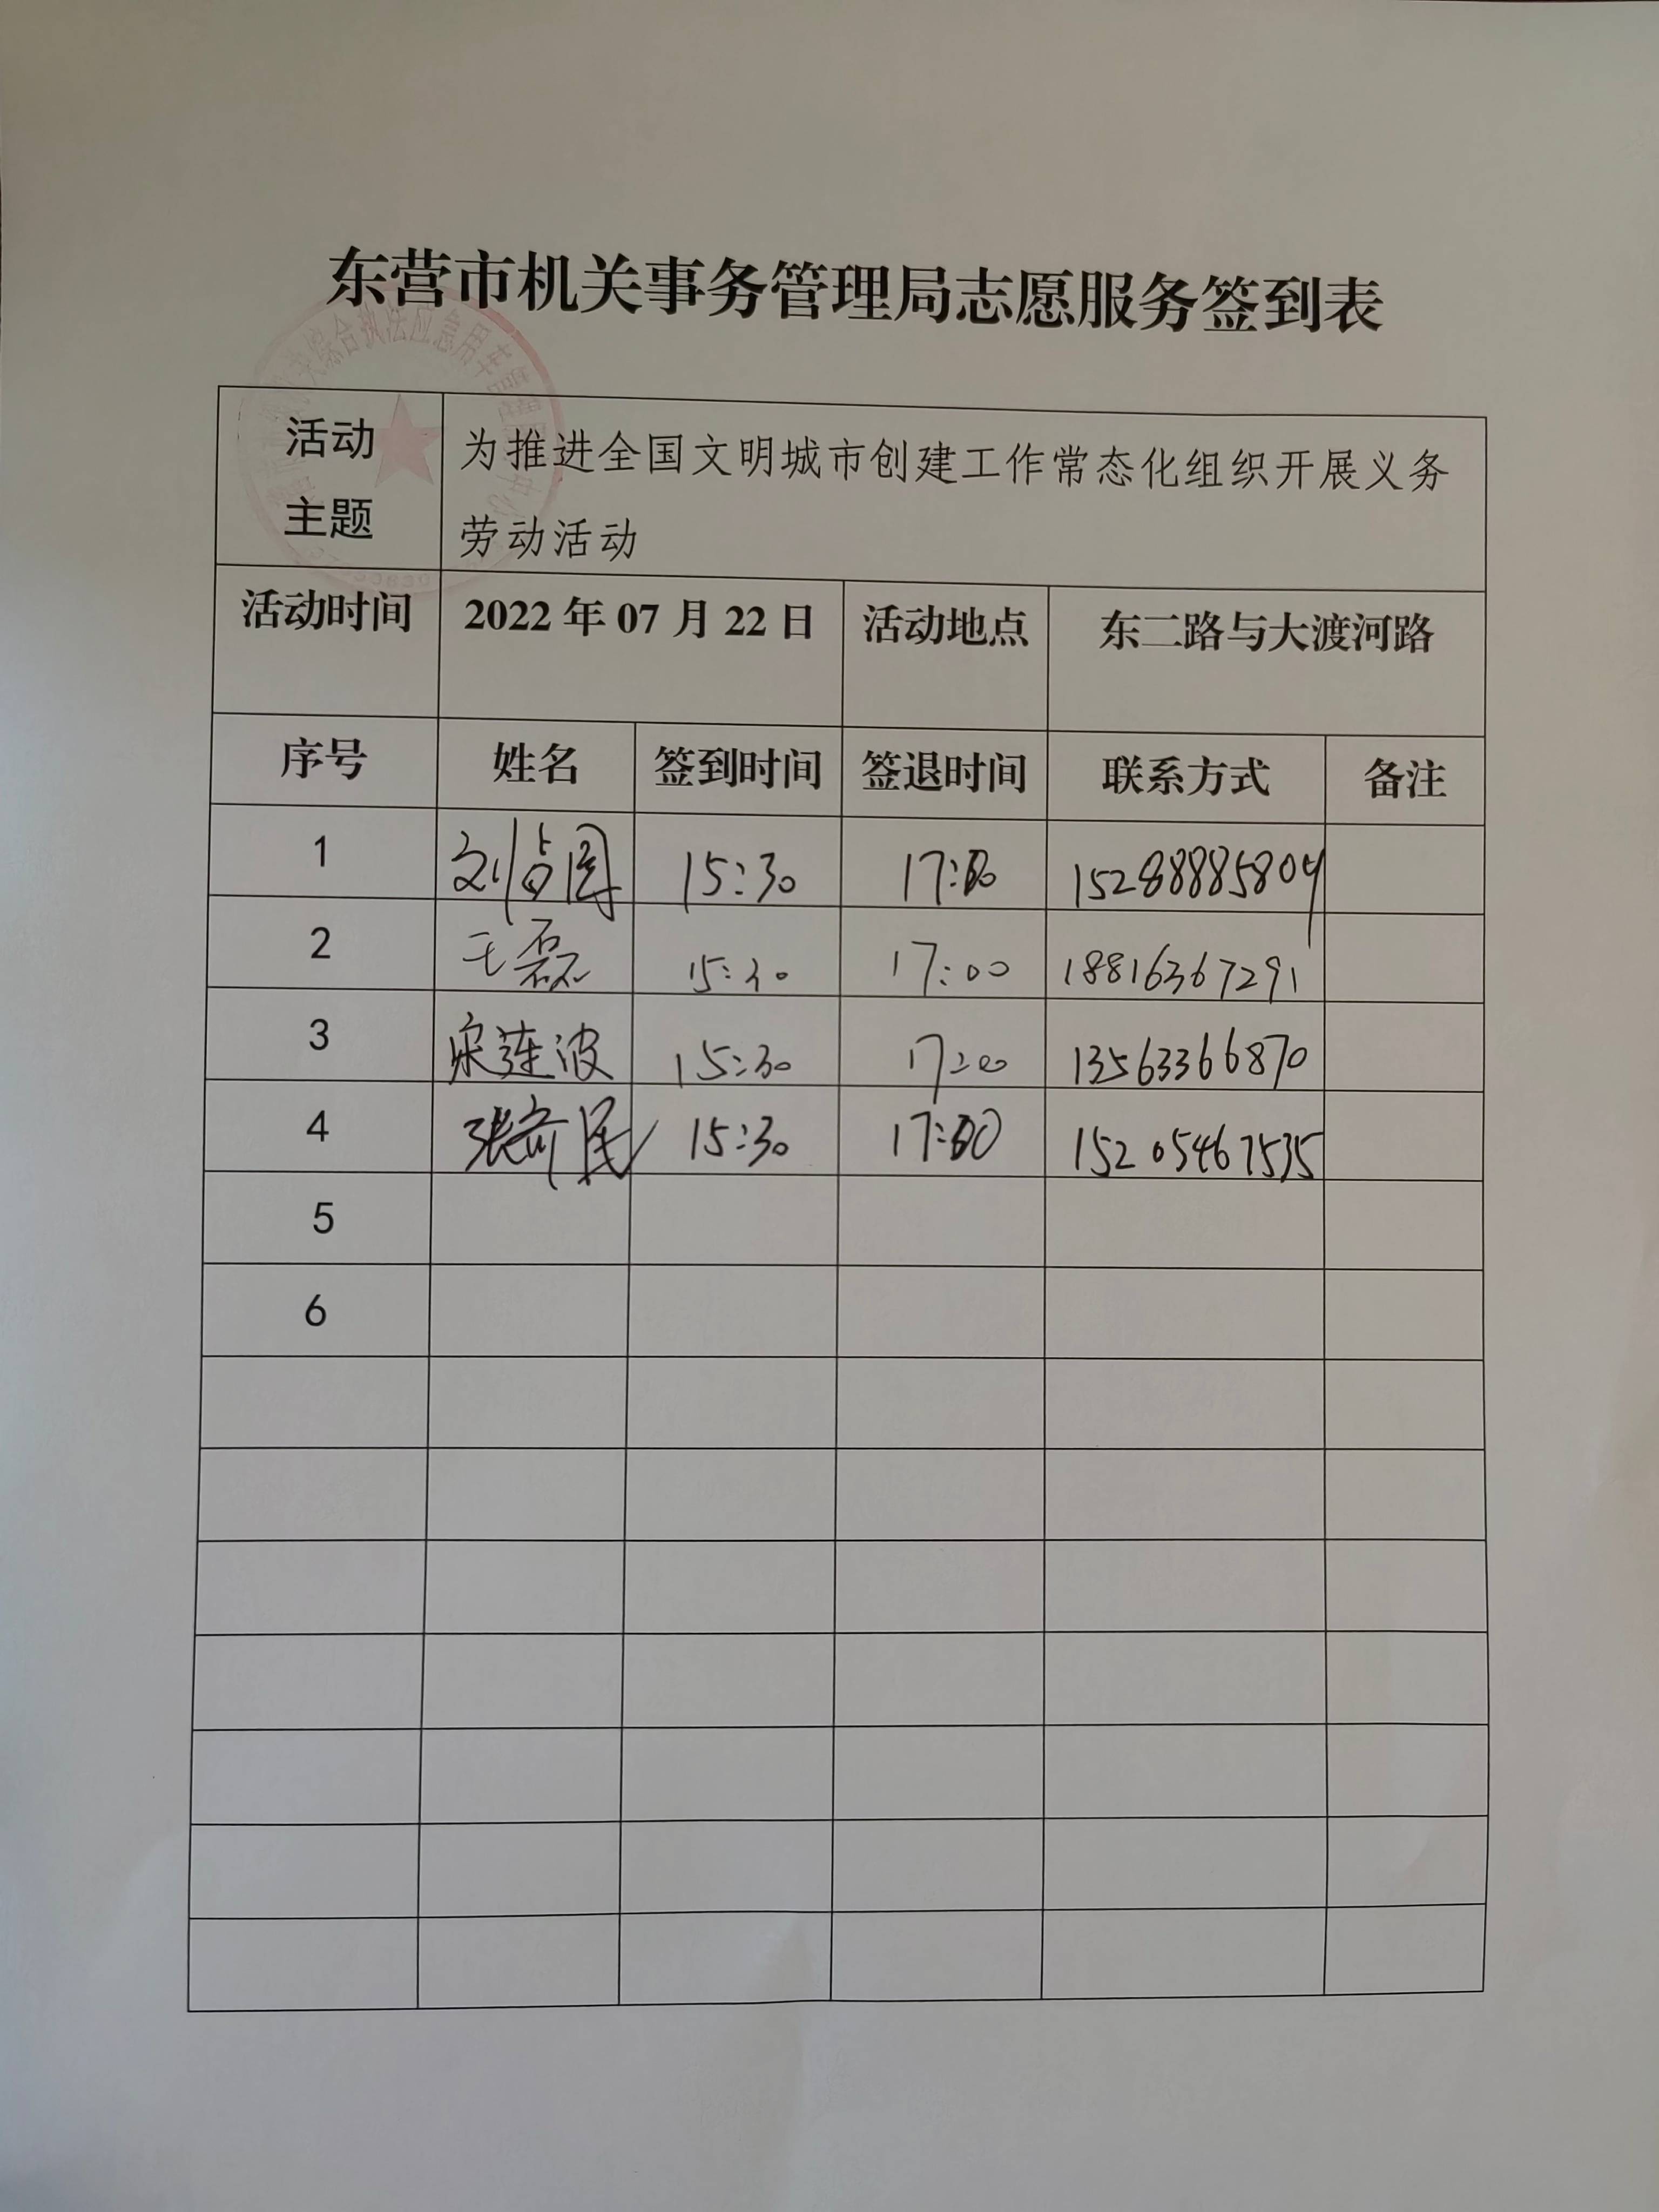 东营市机关事务管理局志愿服务签到表
综合执法应急用车
活动
主题
为推进全国文明城市创建工作常态化组织开展义务
劳动活动
活动时间 2022 年 07 月 22 日 活动地点 东二路与大渡河路
序号 姓名 签到时间 签退时间 联系方式 备注
1 刘占国 15:30 17:00 15288885804
2 王磊 15:30 17:00 18816367291
3 宋莲波 15:30 17:00 13563366870
4 张 民 15:30 17:00 15205467535
5
6